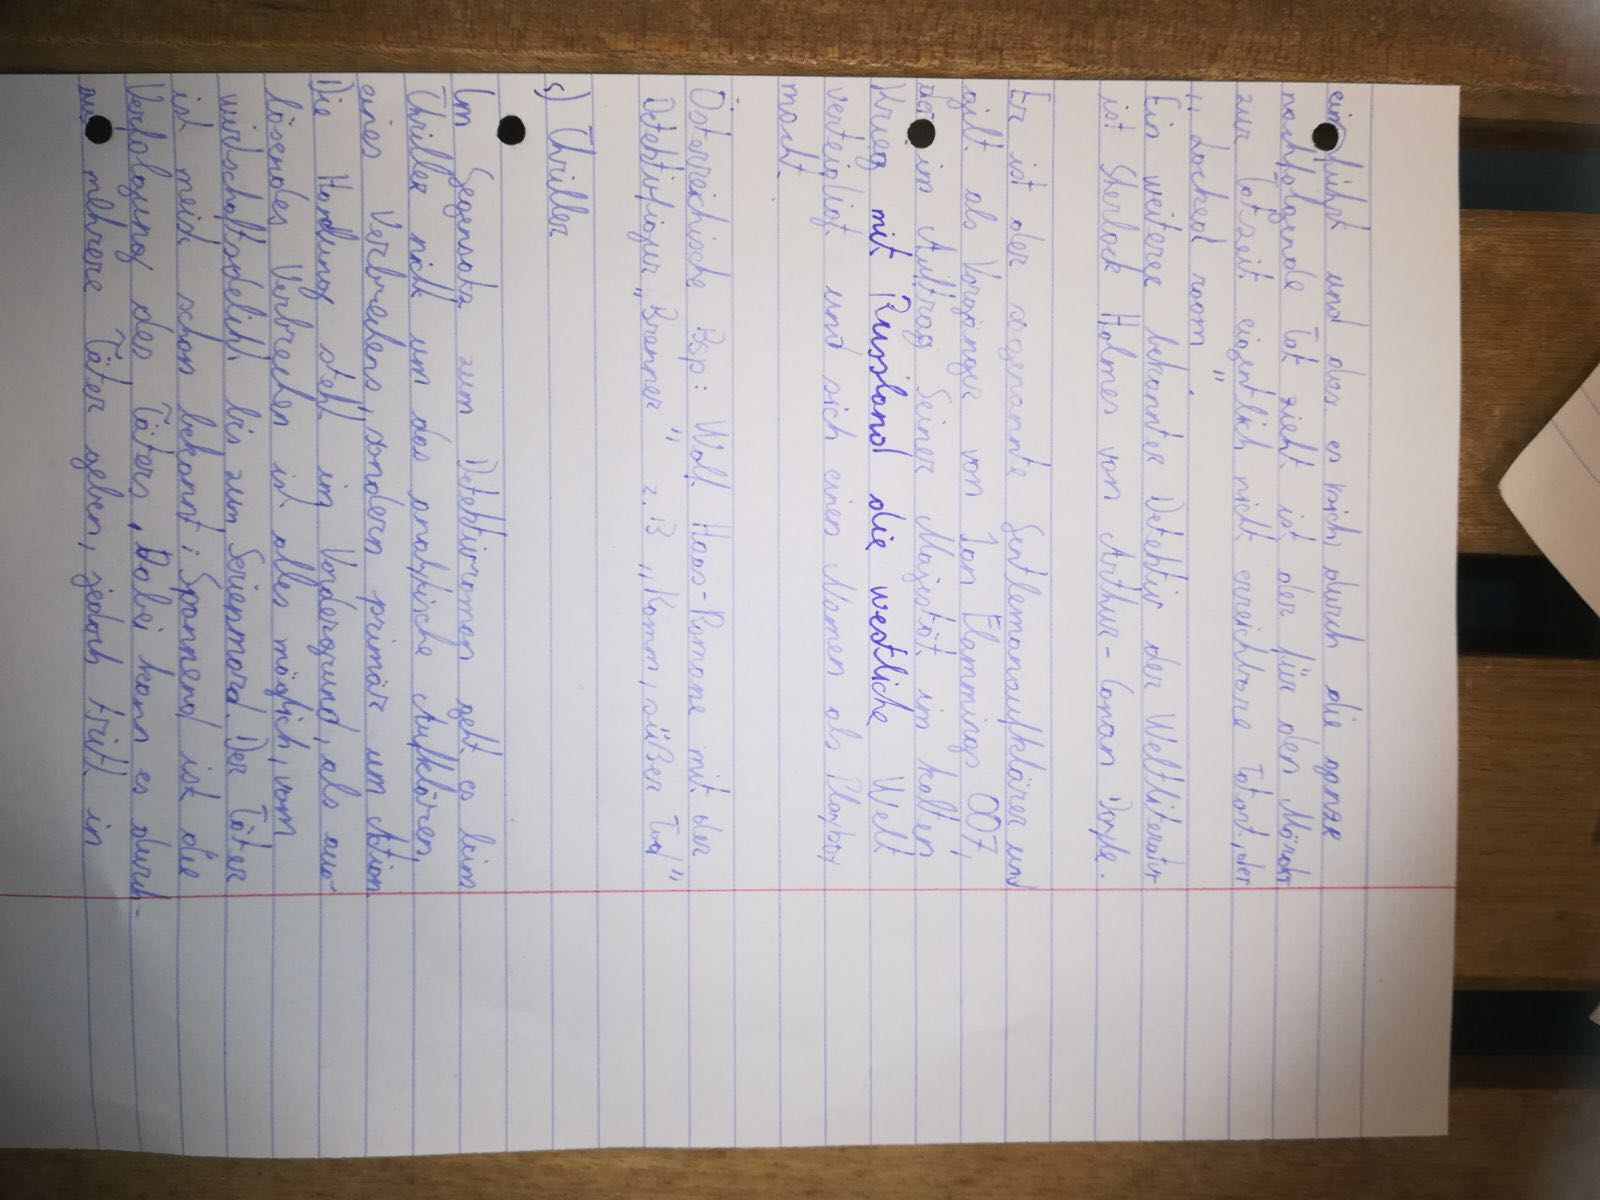 einführt und das es sich durch die ganze
nachfolgende Tat zieht ist der für den Mörder
zur Tatzeit eigentlich nicht erreichbare Tatort, der
„Locked room".
Ein weiterer bekannter Detektiv der Weltliteratur
ist Sherlock Holmes von Arthur-Conan Doyle.
Er ist der sogenannte Gentlemanaufklärer und
gilt als Vorgänger von Ian Flammings 007,
der im Auftrag Seiner Majestät im kalten
Krieg mit Russland die westliche Welt
verteigligt und sich einen Namen als Playboy
macht.
Österreichische Bsp: Wolf Haas-Romane mit der
Detektivfigur „Brenner" z.B „Komm, süßer Tod"
c) Thriller
Im Gegensatz zum Detektivroman geht es beim
Thriller nicht um das analytische Aufklären
eines Verbrechens, sondern primär um Action
Die Handlung steht im Vordergrund, als aus-
lösendes Verbrechen ist alles möglich, vom
wirtschaftsdelikt bis zum Serienmord. Der Täter
ist meist schon bekannt; Spannend ist die
Verfolgung des Täters. Dabei kann es durch-
aus mehrere Täter geben, jedoch tritt in